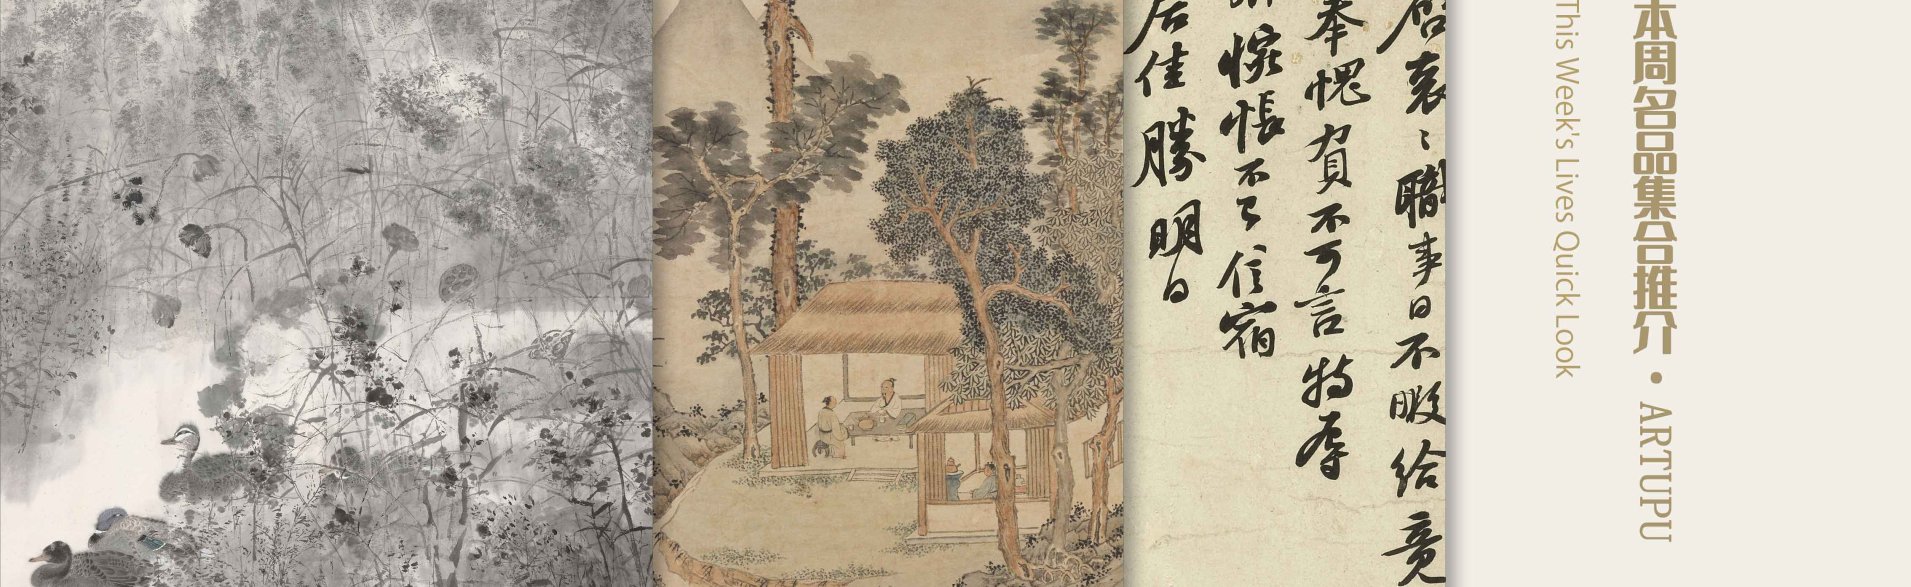 本周名品集合推介・ARTUPU
This Week's Lives Quick Look
袞〻職事日不暇給竟
奉愧負不可言特辱
惋悵不已信宿
居佳勝明日